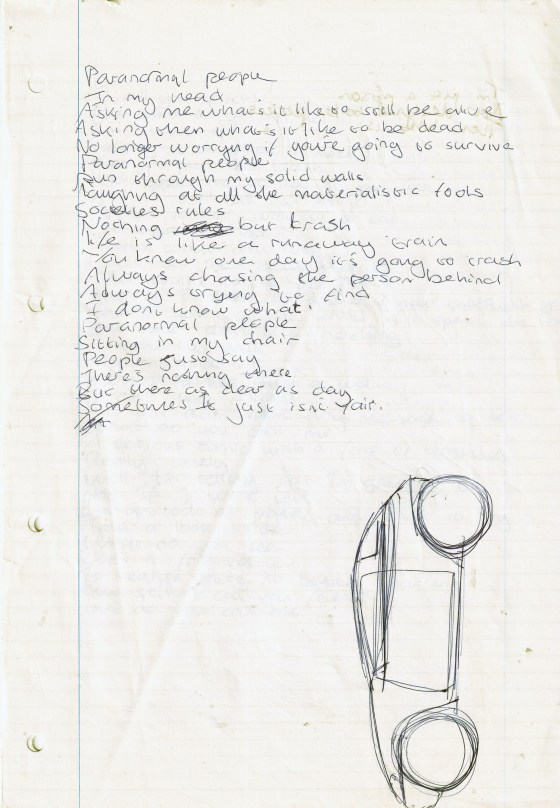 Paranormal people
In my head
Asking me what's it like to still be alive
Asking them what's it like to be dead
No longer worrying if you're going to survive
Paranormal people
Run through my solid walls
laughing at all the materialistic fools
Societies rules
Nothing but trash
life is like a runaway train
You know one day it's going to crash
Always chasing the person behind
Always trying to find
I dont know what.
Paranormal people
Sitting in my chair
People just say
There's nothing there
But there as clear as day
Sometimes it just isnt fair.